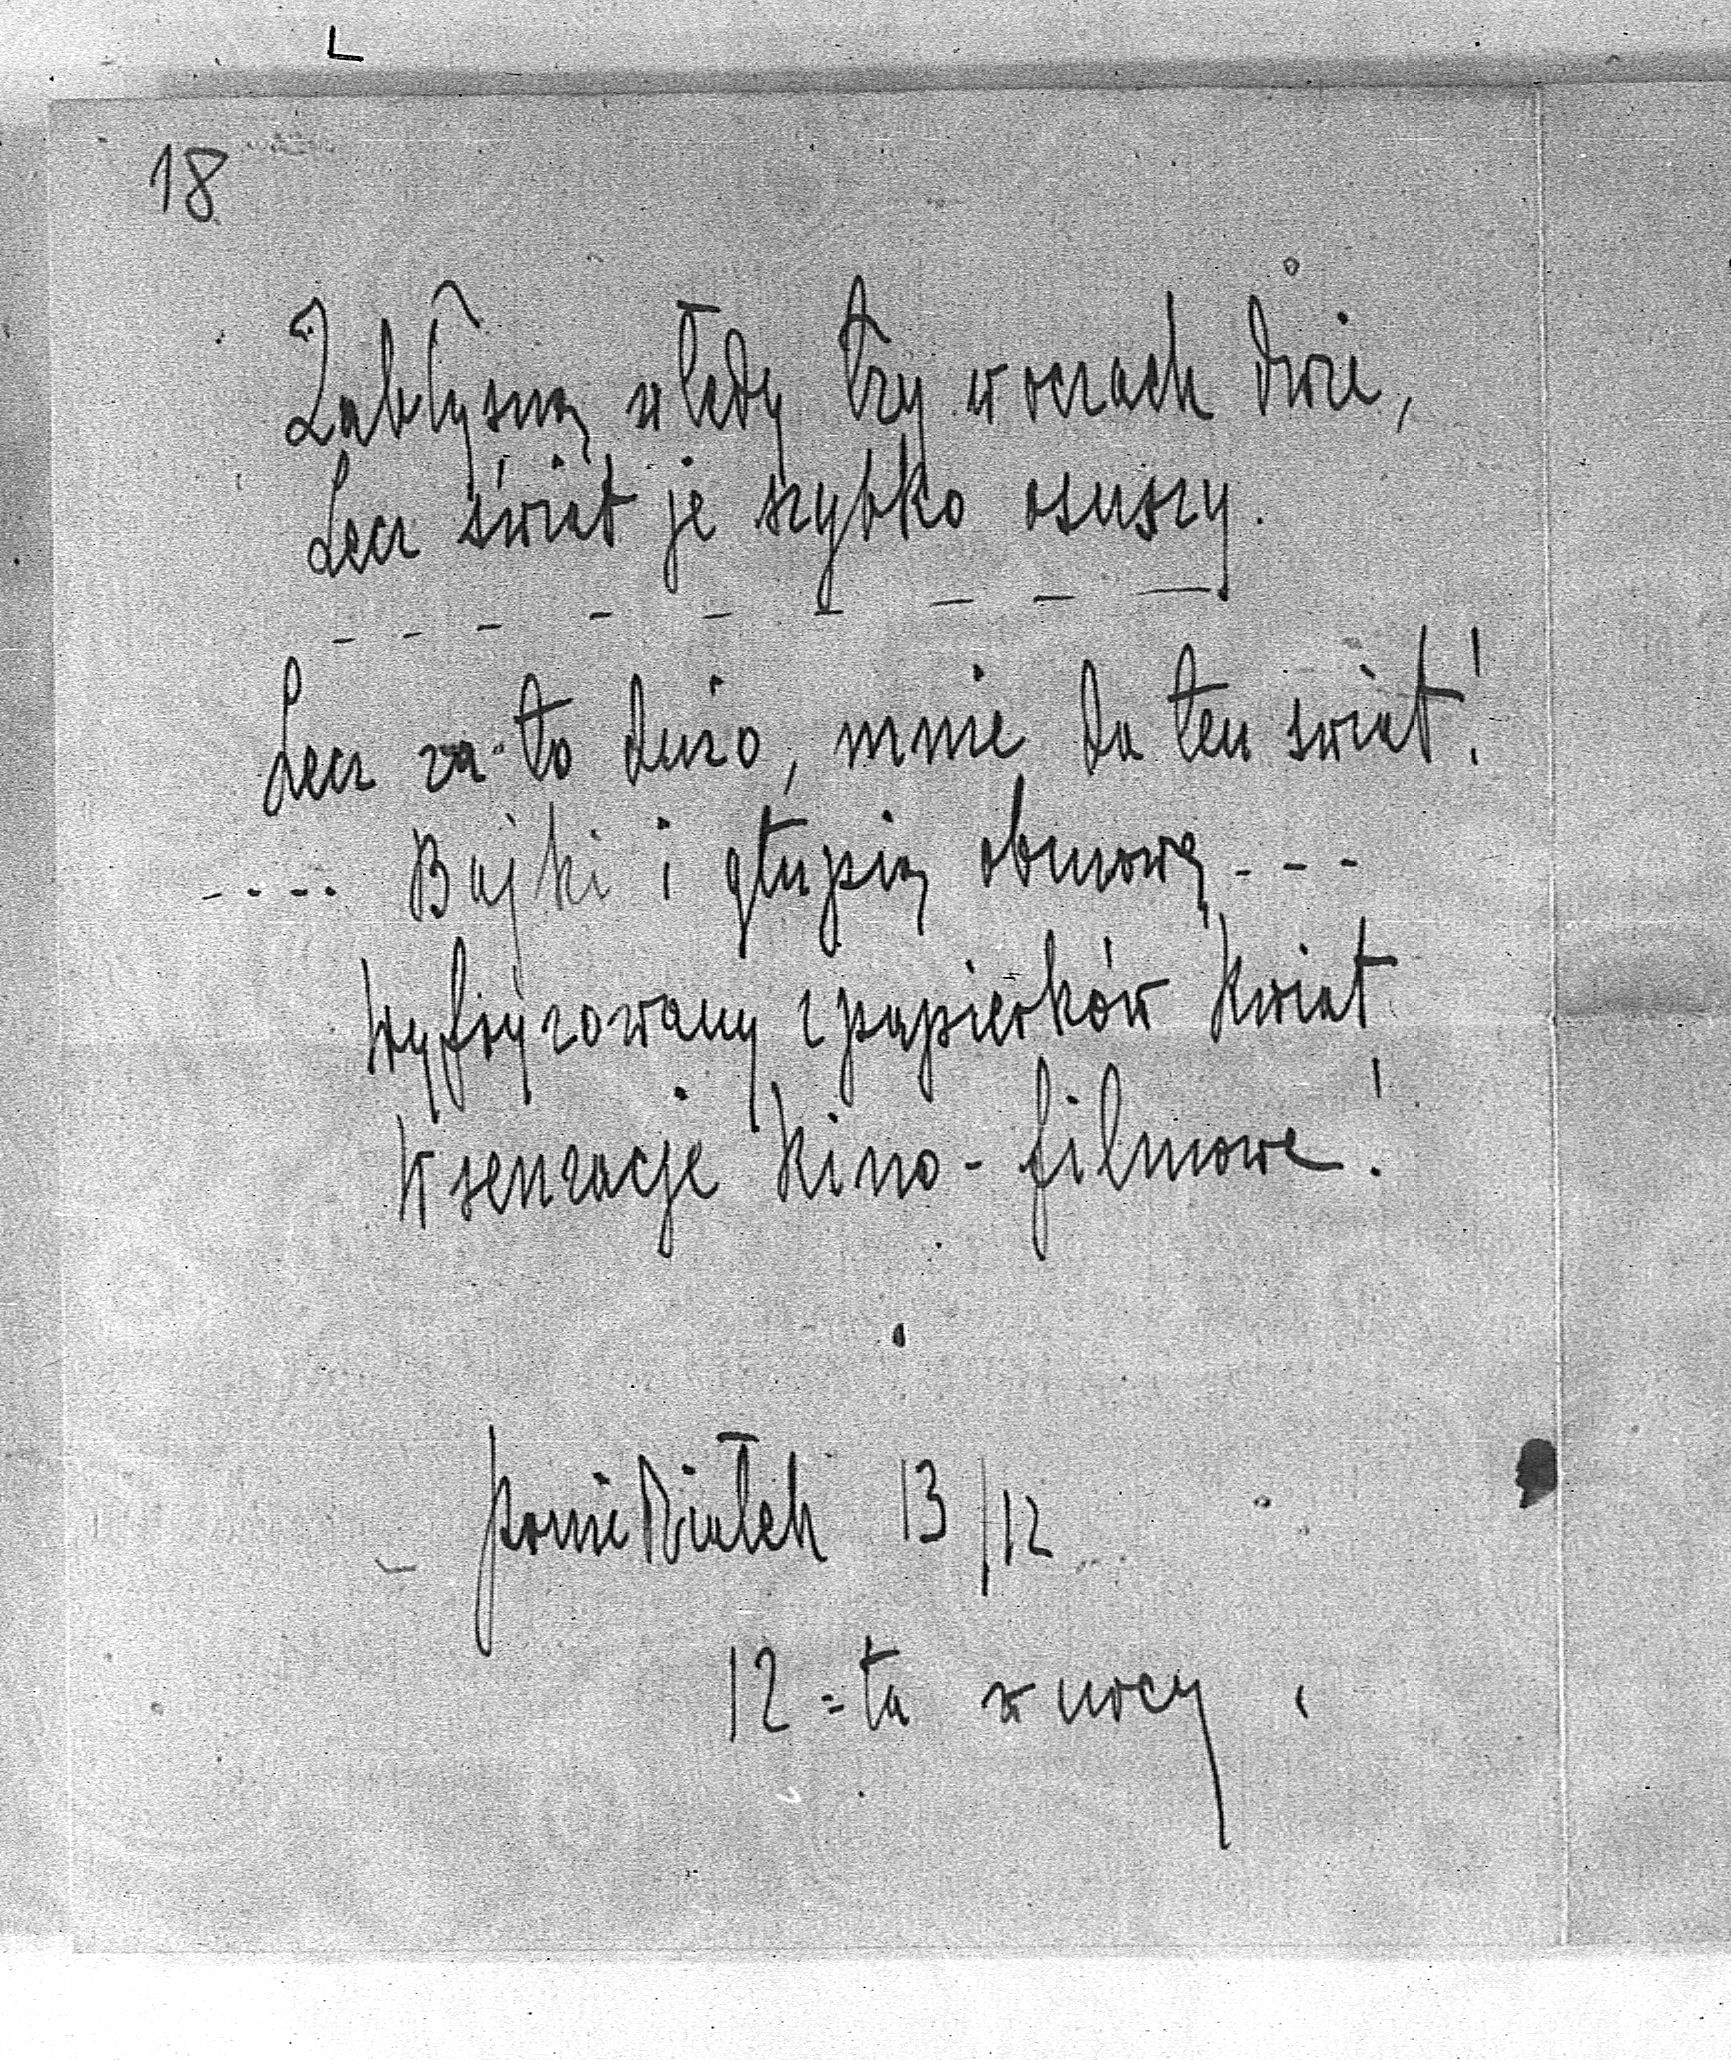 18
Zabłysną wtedy łzy w oczach dwie,
Lecz świat je szybko osuszy.
Lecz za-to dużo, mnie da ten świat!
.... Bajki i głupią obmowę - - -
Wyfryzowany z papierków kwiat
W senzacje kino-filmowe!
poniedziałek 13/12
12=ta w nocy